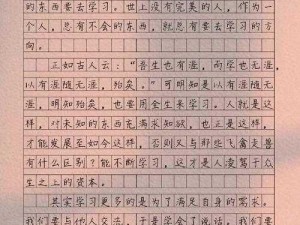 的东西要去学习。世上没有完美的人,作为一
个人,总有不会的东西,就总有要去学习的方
向。
正如古人云:“吾生也有涯,而学也无涯,
以有涯随无涯,殆矣。”可明知是以有涯随无
涯,明知殆矣,也要用全生来学习。人就是这
样,对未知的东西充满求知欲,也正是这样,
才能发展至如今这样。否则又与那些飞禽走兽
有什么区别?能不断学习,这才是人凌驾于众
生之上的资本。
其实学习更多的是为了满足自身的需求。
我们要与他人交流,于是学会了说话。我们要